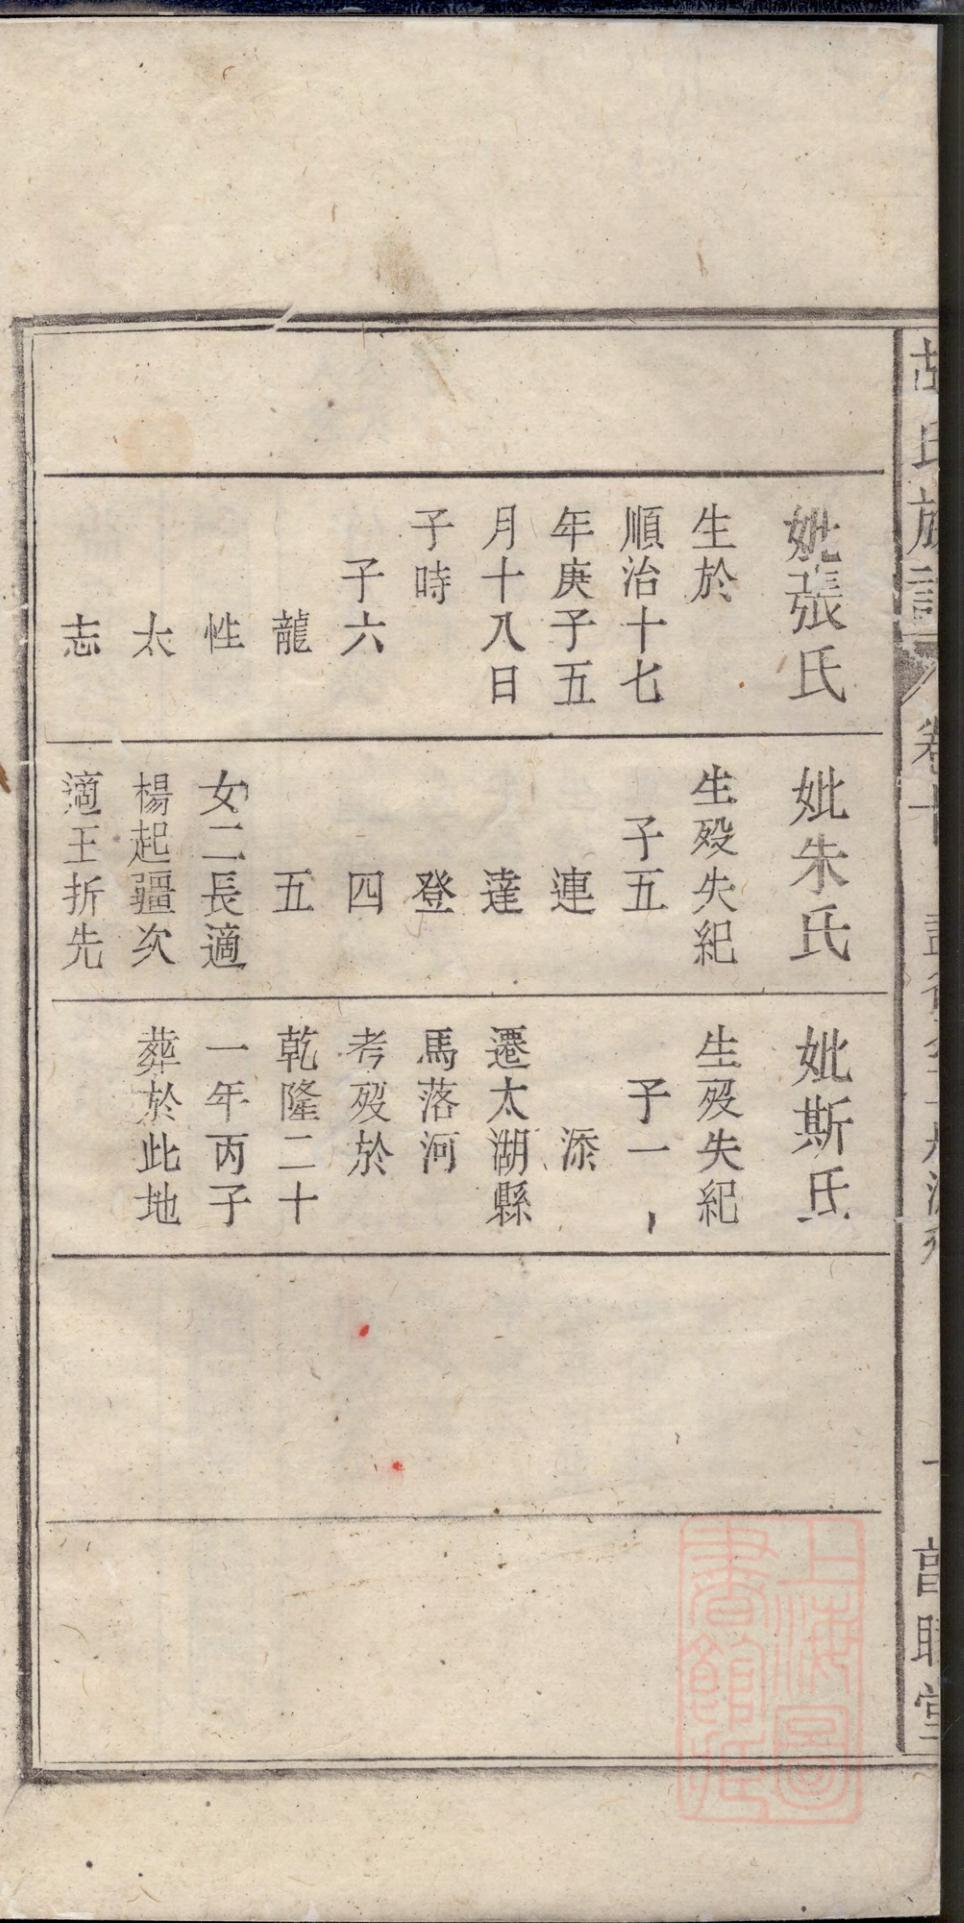 胡氏族譜
卷十
妣張氏
生於
順治十七
年庚子五
月十八日
子時
子六
龍
性
太
志
妣朱氏
生歿失紀
子五
連
達
登
四
五
女二長適
楊起疆次
適王折先
妣斯氏
生歿失紀
子一
添
遷太湖縣
馬落河
考歿於
乾隆二十
一年丙子
葬於此地
上海圖
書館藏